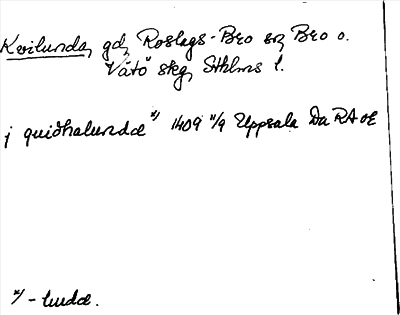 Kvilunda, gd, Roslags-Bro sn, Bro o.
Vätö skg, Sthlms l.
j quidhalundæ x/ 1409 11/9 Uppsala Da RA oE
x/ - lundæ.